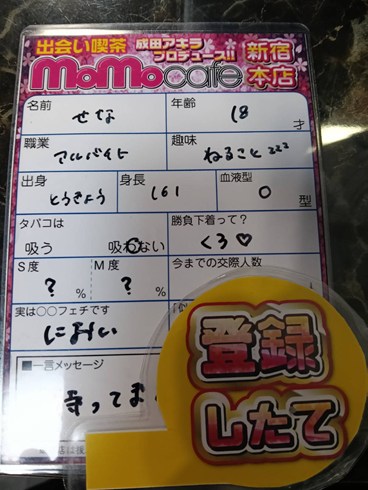 出会い喫茶 成田アキラ プロデュース!! 新宿本店
MoMocafe
名前 せな 年齢 18 才
職業 アルバイト 趣味 ねること zzz
出身 とうきょう 身長 161 血液型 O 型
タバコは 吸う 吸わない 勝負下着って? くろ♡
S度 ? % M度 ? % 今までの交際人数
人
実は○○フェチです におい
■一言メッセージ
待ってま
登録
したて